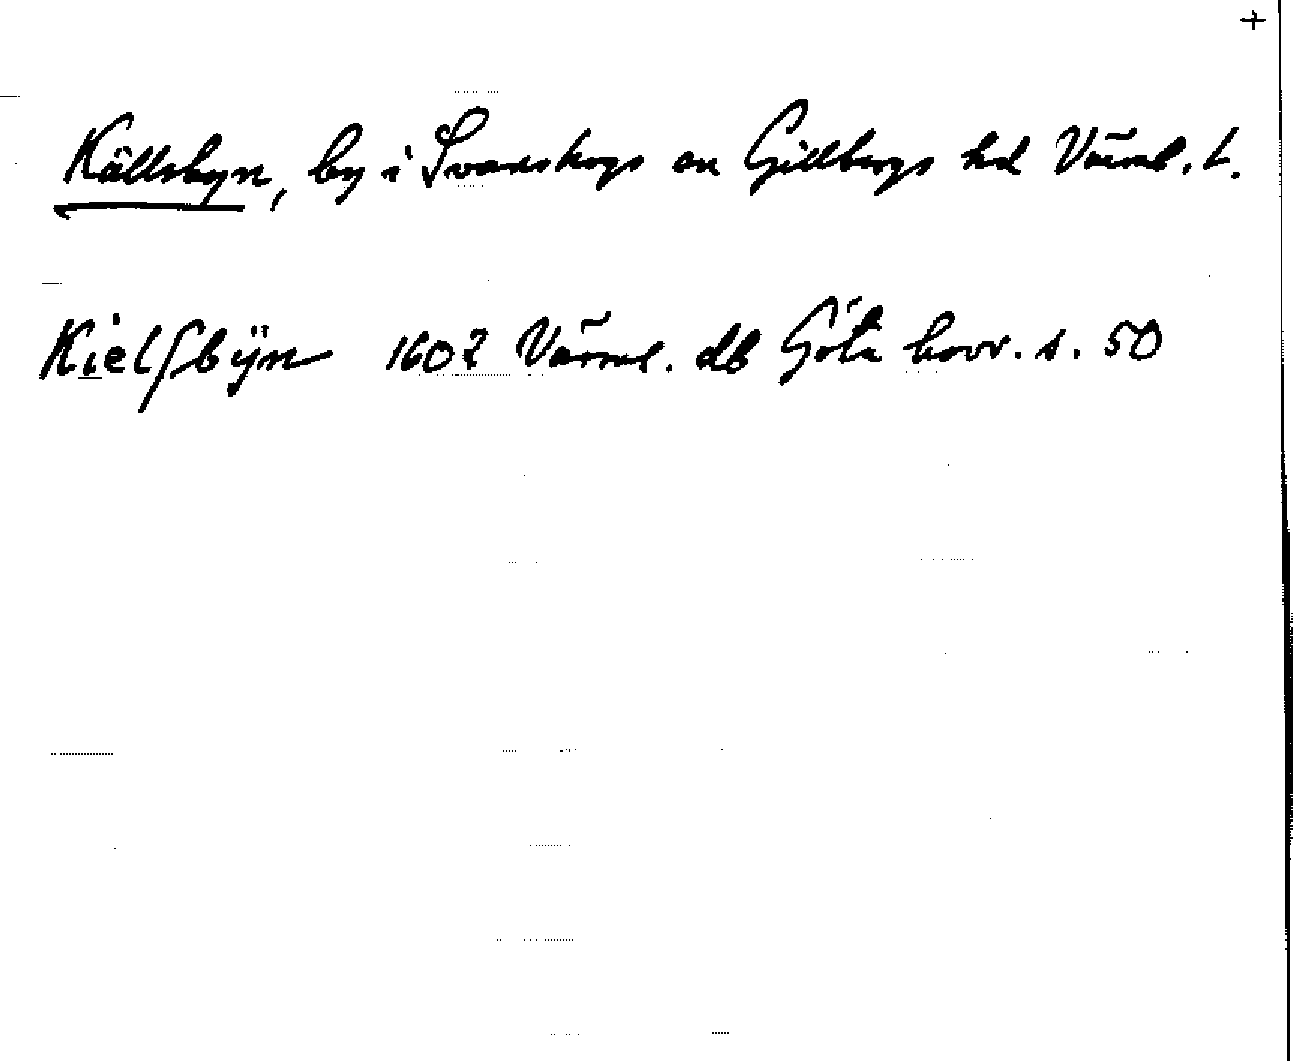 +
Källsbyn, by i Svanskogs sn Gillbergs hd Värml. L.
Kielſbÿn 1607 Värml. db Göta hovr. s. 50